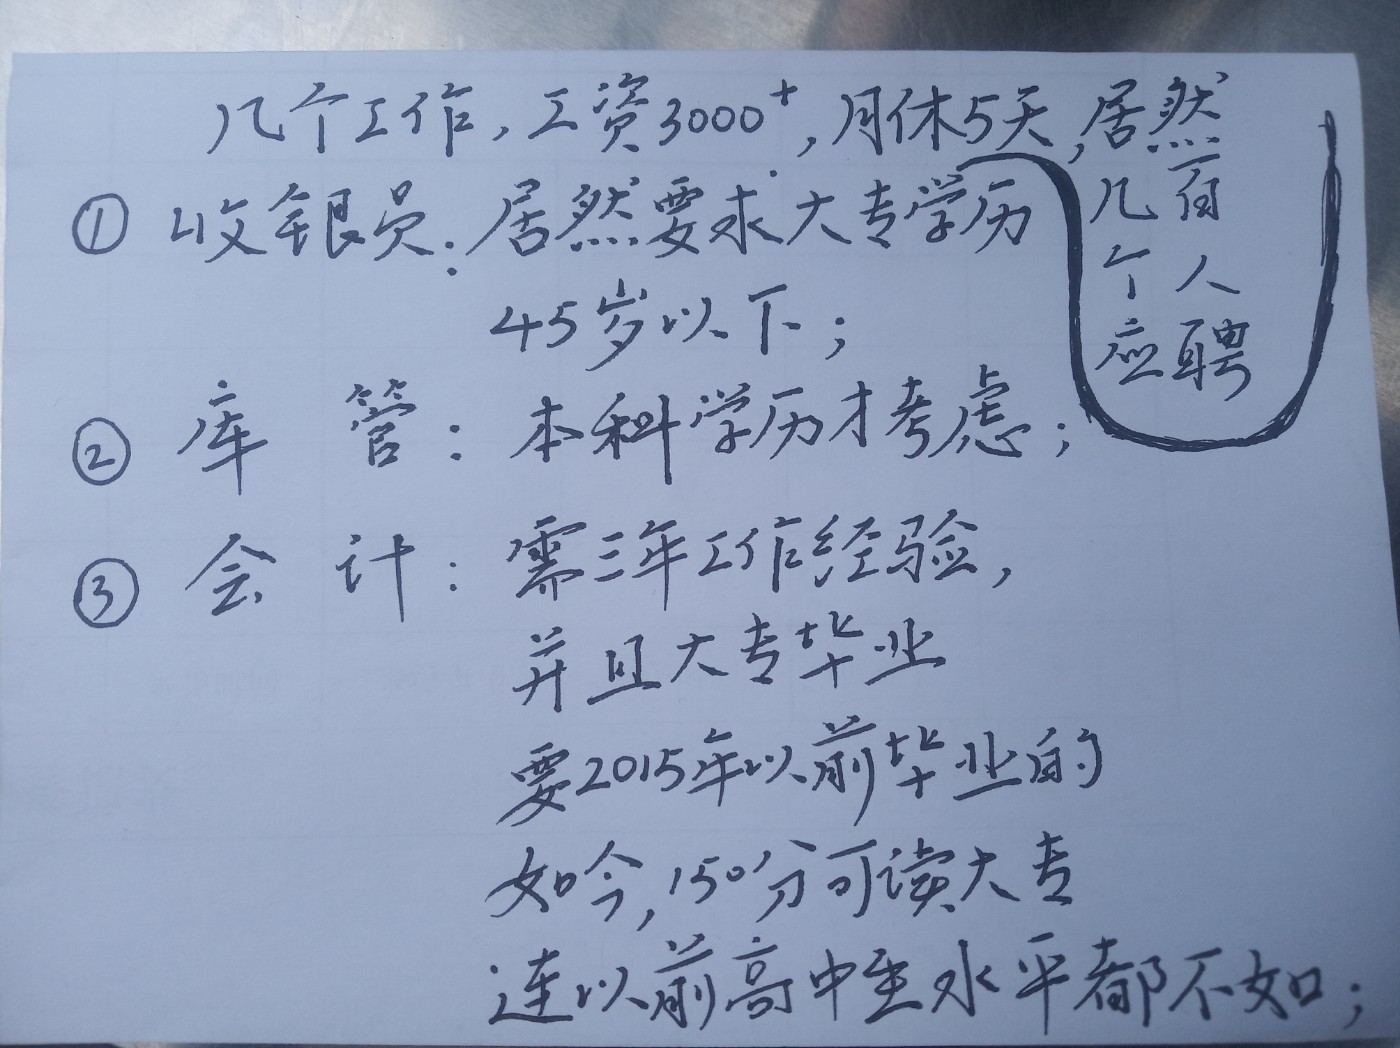 几个工作，工资3000+，月休5天，居然
有人聘
几个应
① 收银员：居然要求大专学历
45岁以下；
② 库管：本科学历才考虑；
③ 会计：需三年工作经验，
并且大专毕业
要2015年以前毕业的
如今，150分可读大专
连以前高中生水平都不如；